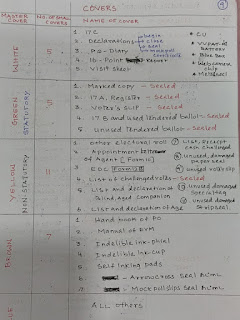 MASTER COVER
NO. OF SMALL COVERS
NAME OF COVER
9
COVERS
WHITE
5
1. 17C
2. Declarations
begin
close
seal
3. P.O - Diary
4. 16-Point Report
5. Visit Sheet
* CU
* VVPAT
Battery
* Blue Bin
* Webcamera
chip
* Metal seal
GREEN
STATUTORY
5
1. Marked copy - Sealed
2. 17A. Register - Sealed
3. Voter's SLIP - Sealed
4. 17 B and used Tendered ballot - Sealed
5. Unused Tendered ballot - Sealed
YELLOW
NON-STATUTORY
11
1. Other electoral roll
2. Appointment
of Agent [Form 10]
3. EDC [Form 12B]
4. List of challenged votes - Sealed
5. LIST and declaration of
Blind aged companion
6. LIST and declaration of Age
7. LIST, Receipt
CASH challenged
8. Unused, damaged
paper seal
9. unused voterslip
10. unused, damaged
special tag
11. Unused damaged
strip seal
BROWN
7
1. Hand book of PO
2. Manual of EVM
3. Indelible ink-phial
4. Indelible ink cup
5. Self inking pads
6. Arrow cross seal
7. Mock poll slips seal
ALL others